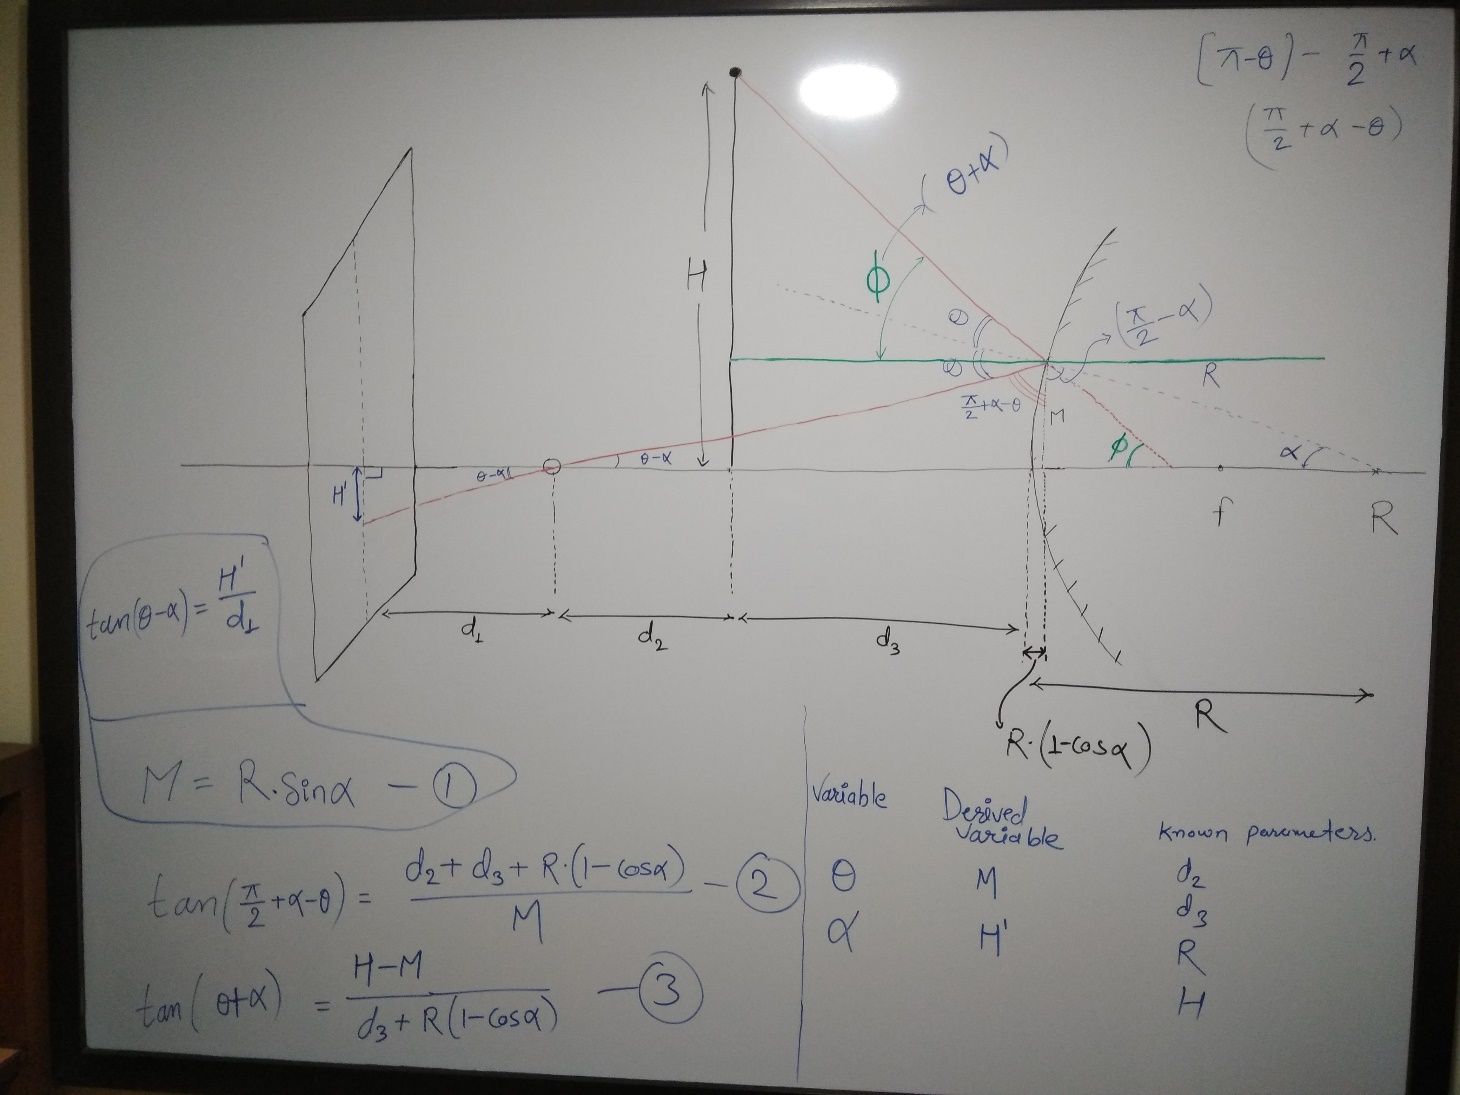 (π-θ) - π/2 + α
(π/2 + α - θ)
(θ+α)
H
ϕ
θ
θ
(π/2 - α)
R
π/2+α-θ
M
ϕ
α
θ-α
θ-α
H'
f
R
d₁
d₂
d₃
R
R·(1-cosα)
tan(θ-α) = H'/d₁
M = R·Sinα - ①
tan(π/2 + α-θ) = d₂ + d₃ + R·(1-cosα) / M - ②
tan(θ+α) = H-M / d₃ + R(1-cosα) - ③
Variable
θ
α
Derived
Variable
M
H'
Known parameters.
d₂
d₃
R
H